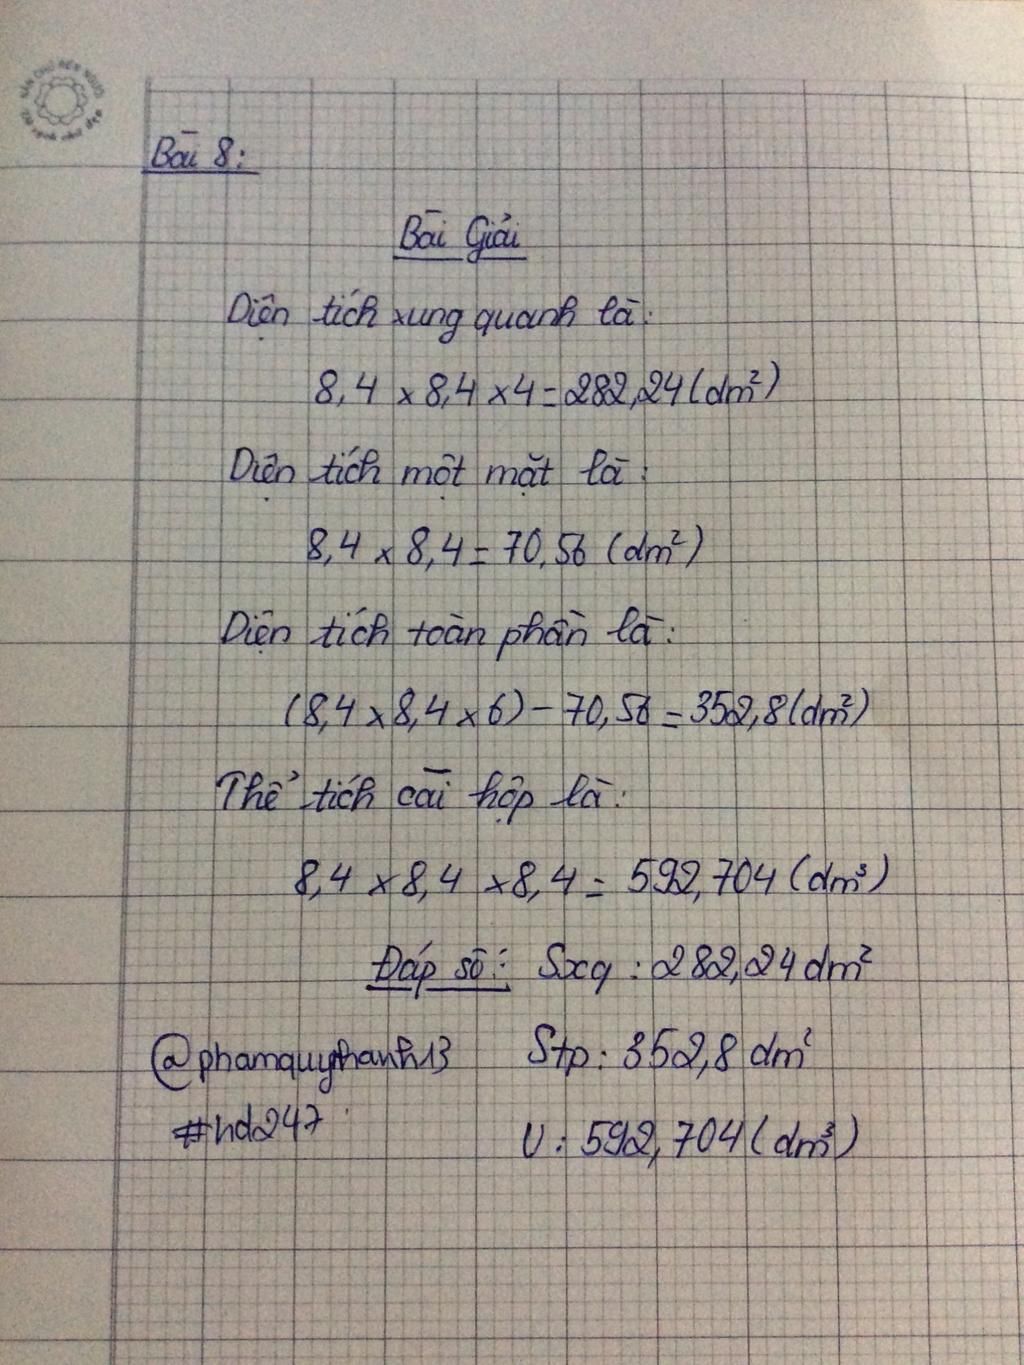 Bài 8:
Bài Giải
Diện tích xung quanh là:
8,4 x 8,4 x 4 = 282,24 (dm²)
Diện tích một mặt là:
8,4 x 8,4 = 70,56 (dm²)
Diện tích toàn phần là:
(8,4 x 8,4 x 6) - 70,56 = 352,8 (dm²)
Thể tích cái hộp là:
8,4 x 8,4 x 8,4 = 592,704 (dm³)
Đáp số: Sxq : 282,24 dm²
@phamquythanh13 Stp: 352,8 dm²
#hd247 V: 592,704 (dm³)